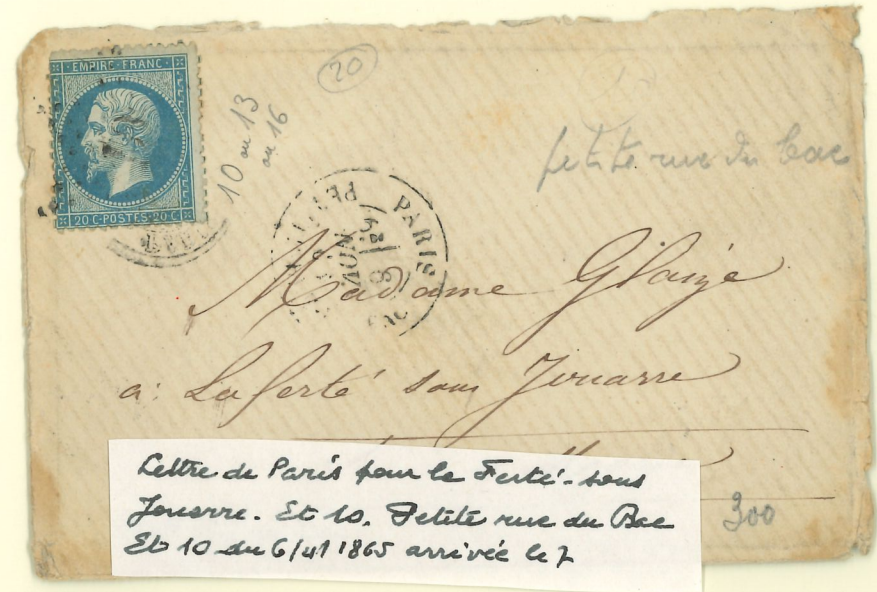 EMPIRE FRANC
20 C-POSTES-20 C
20
10 ou 13
ou 16
petite rue du bac
PARIS
Madame Glaize
à: La ferté sous Jouarre
Lettre de Paris pour la Ferté-sous
Jouarre. Et 10. Petite rue du Bac
Et 10 du 6/ 1865 arrivée le 7
300